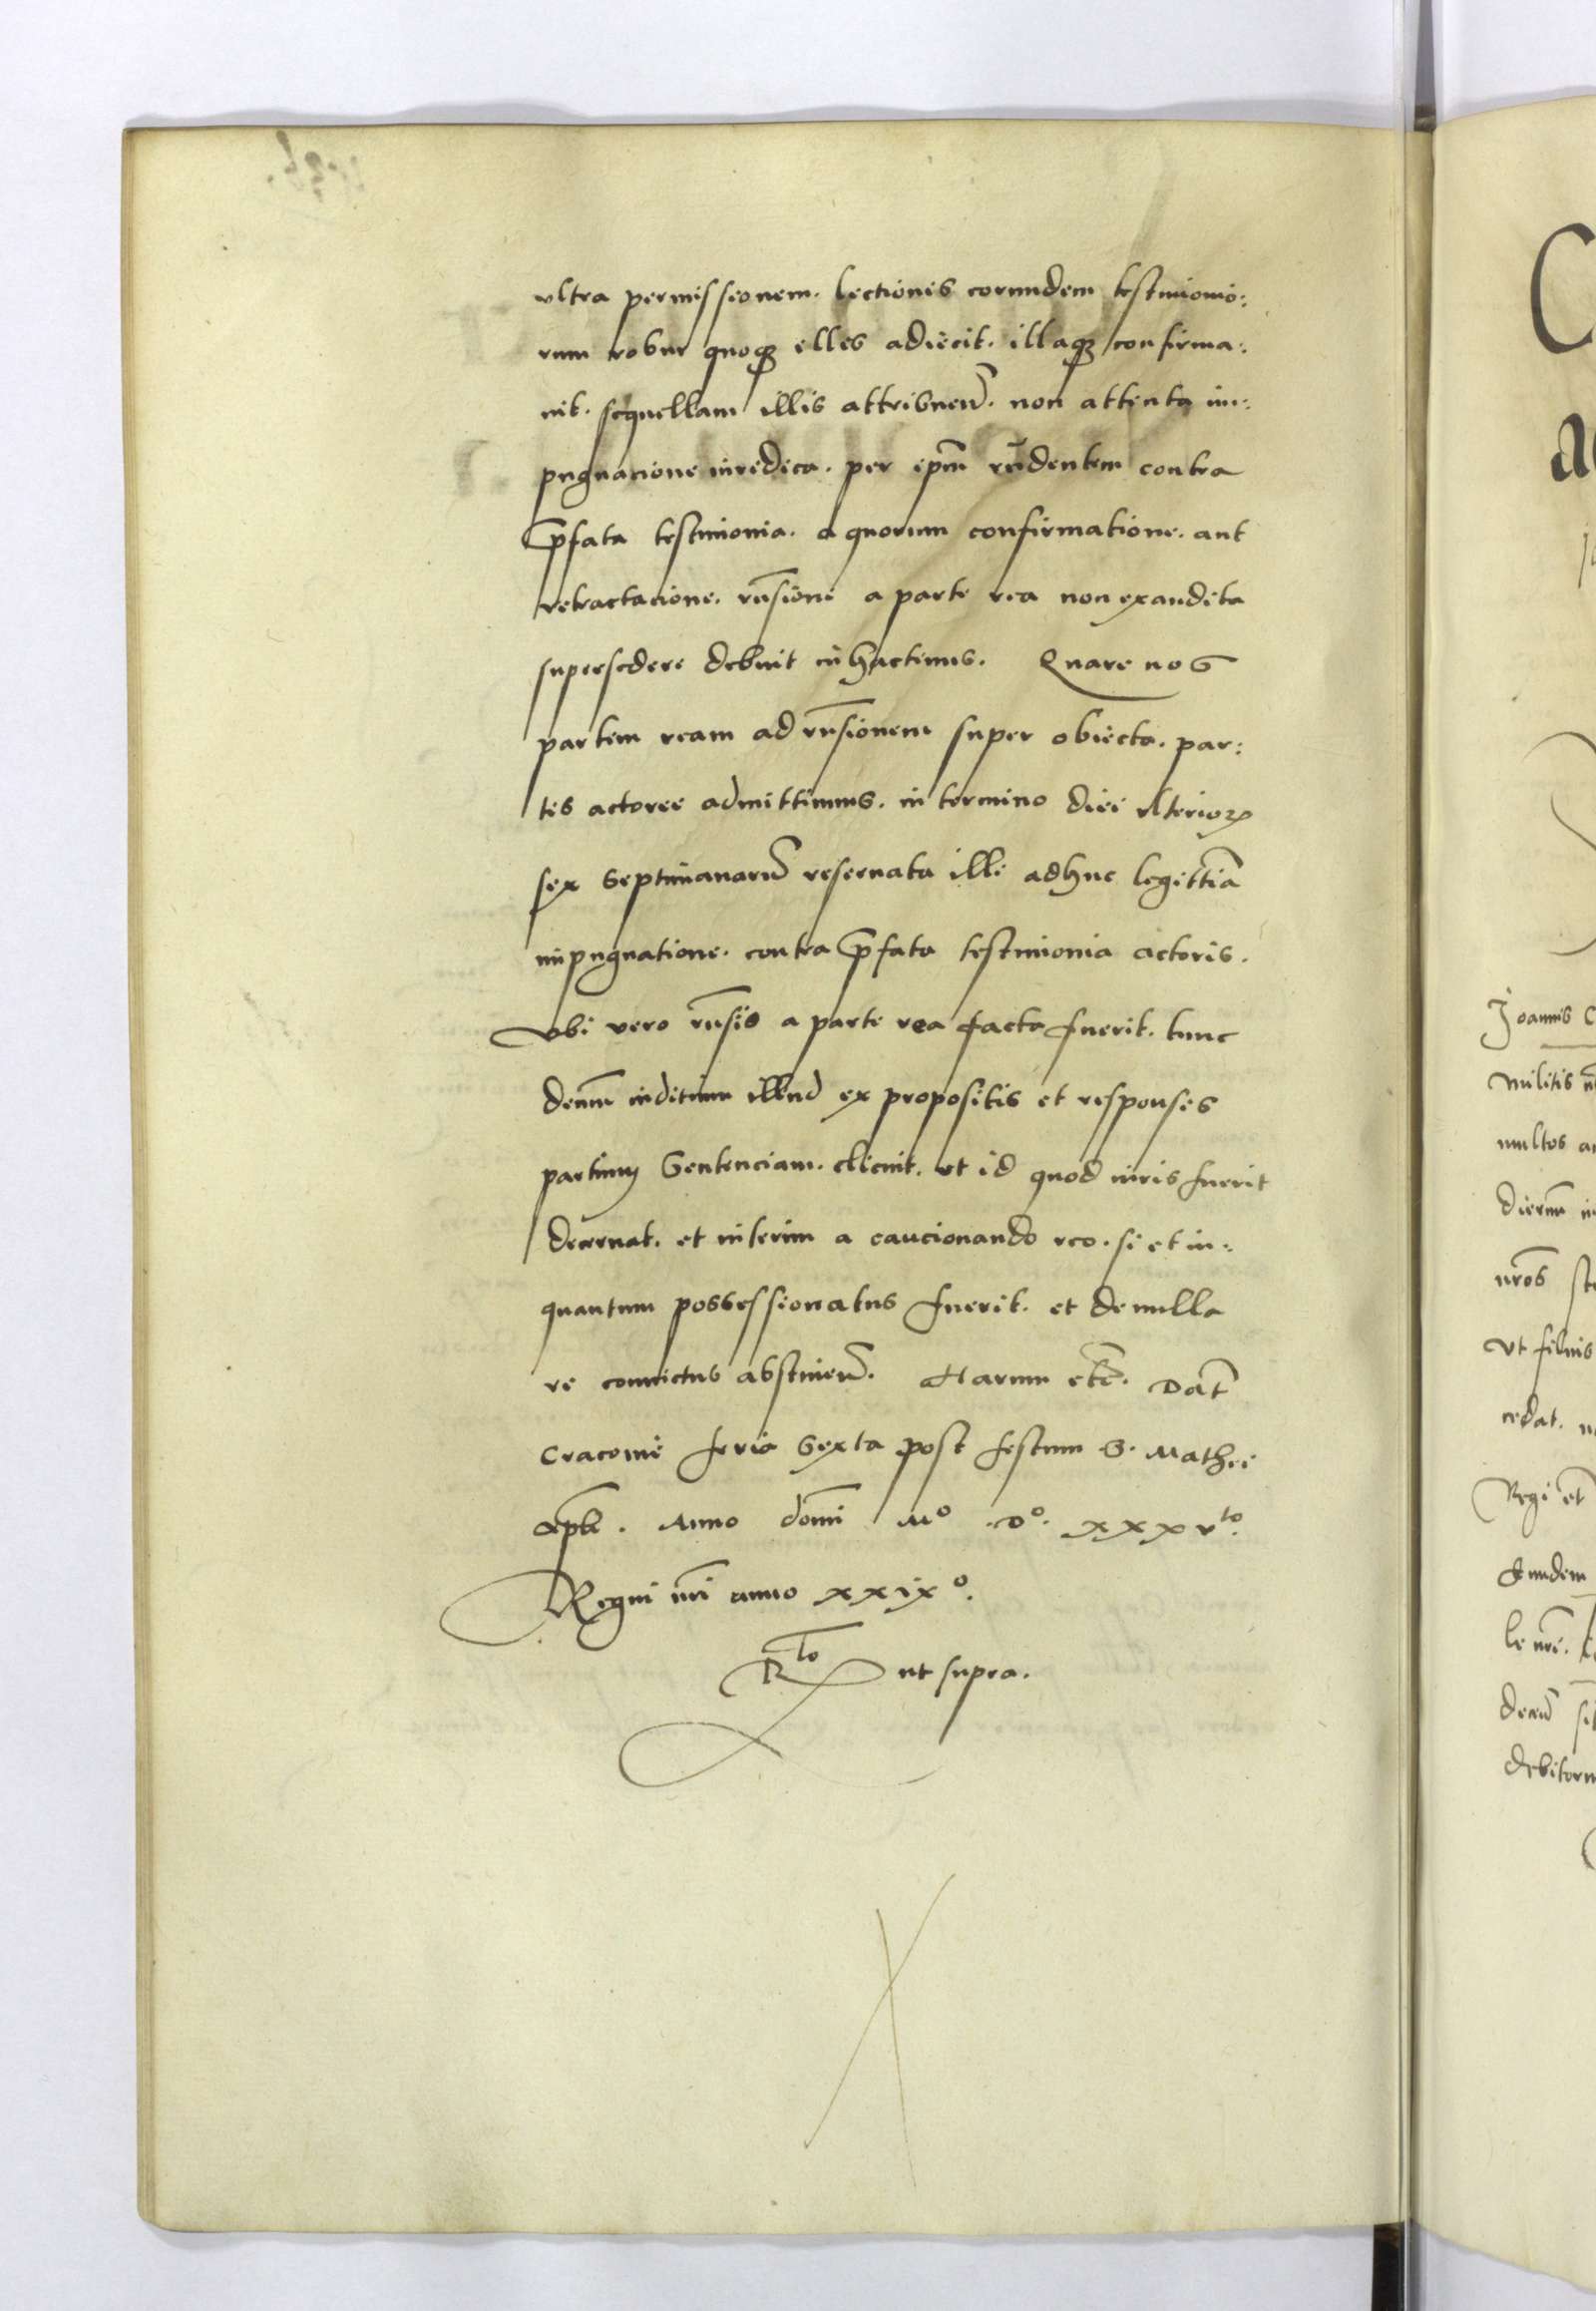 ultra permissionem. lectionis eorundem testimonio:
rum robur quoqȝ illis adiecit. illaqȝ confirma:
uit. sequellam illis attribueñ. non attenta im:
pugnacione iuridica. per ip̄m rn̄dentem contra
p̄fata testimonia. a quorum confirmatione. aut
retractacione. rn̄sione a parte rea non exaudita
supersedere debuit in hactenus. Quare nos
partem ream ad rn̄sionem super obiecta. par:
tis actoree admittimus. in termino diei ulterioꝝ
sex septimanarū reseruata illi adhuc legittīa
impugnatione. contra p̄fata testimonia actoris.
Vbi vero rn̄sio a parte rea facta fuerit. tunc
demū iudicium illud ex propositis et responsis
partium sentenciam. eliciat. ut id quod iuris fuerit
decernat. et interim a caucionando reo. si et in:
quantum possessionatus fuerit. et de nulla
re conuictus abstineñ. Harum etc̄. Dat̄
Cracouie feria sexta post festum S. Mathei
Ap̄li. Anno dōmi Mº .Dº. xxxvto.
Regni nr̄i anno xxixº.
Rlo ut supra.
C
Joannis C
militis
multos
dierum
nr̄os
Vt filius
cedat.
Regi et
Eundem
le nr̄e.
debitorum